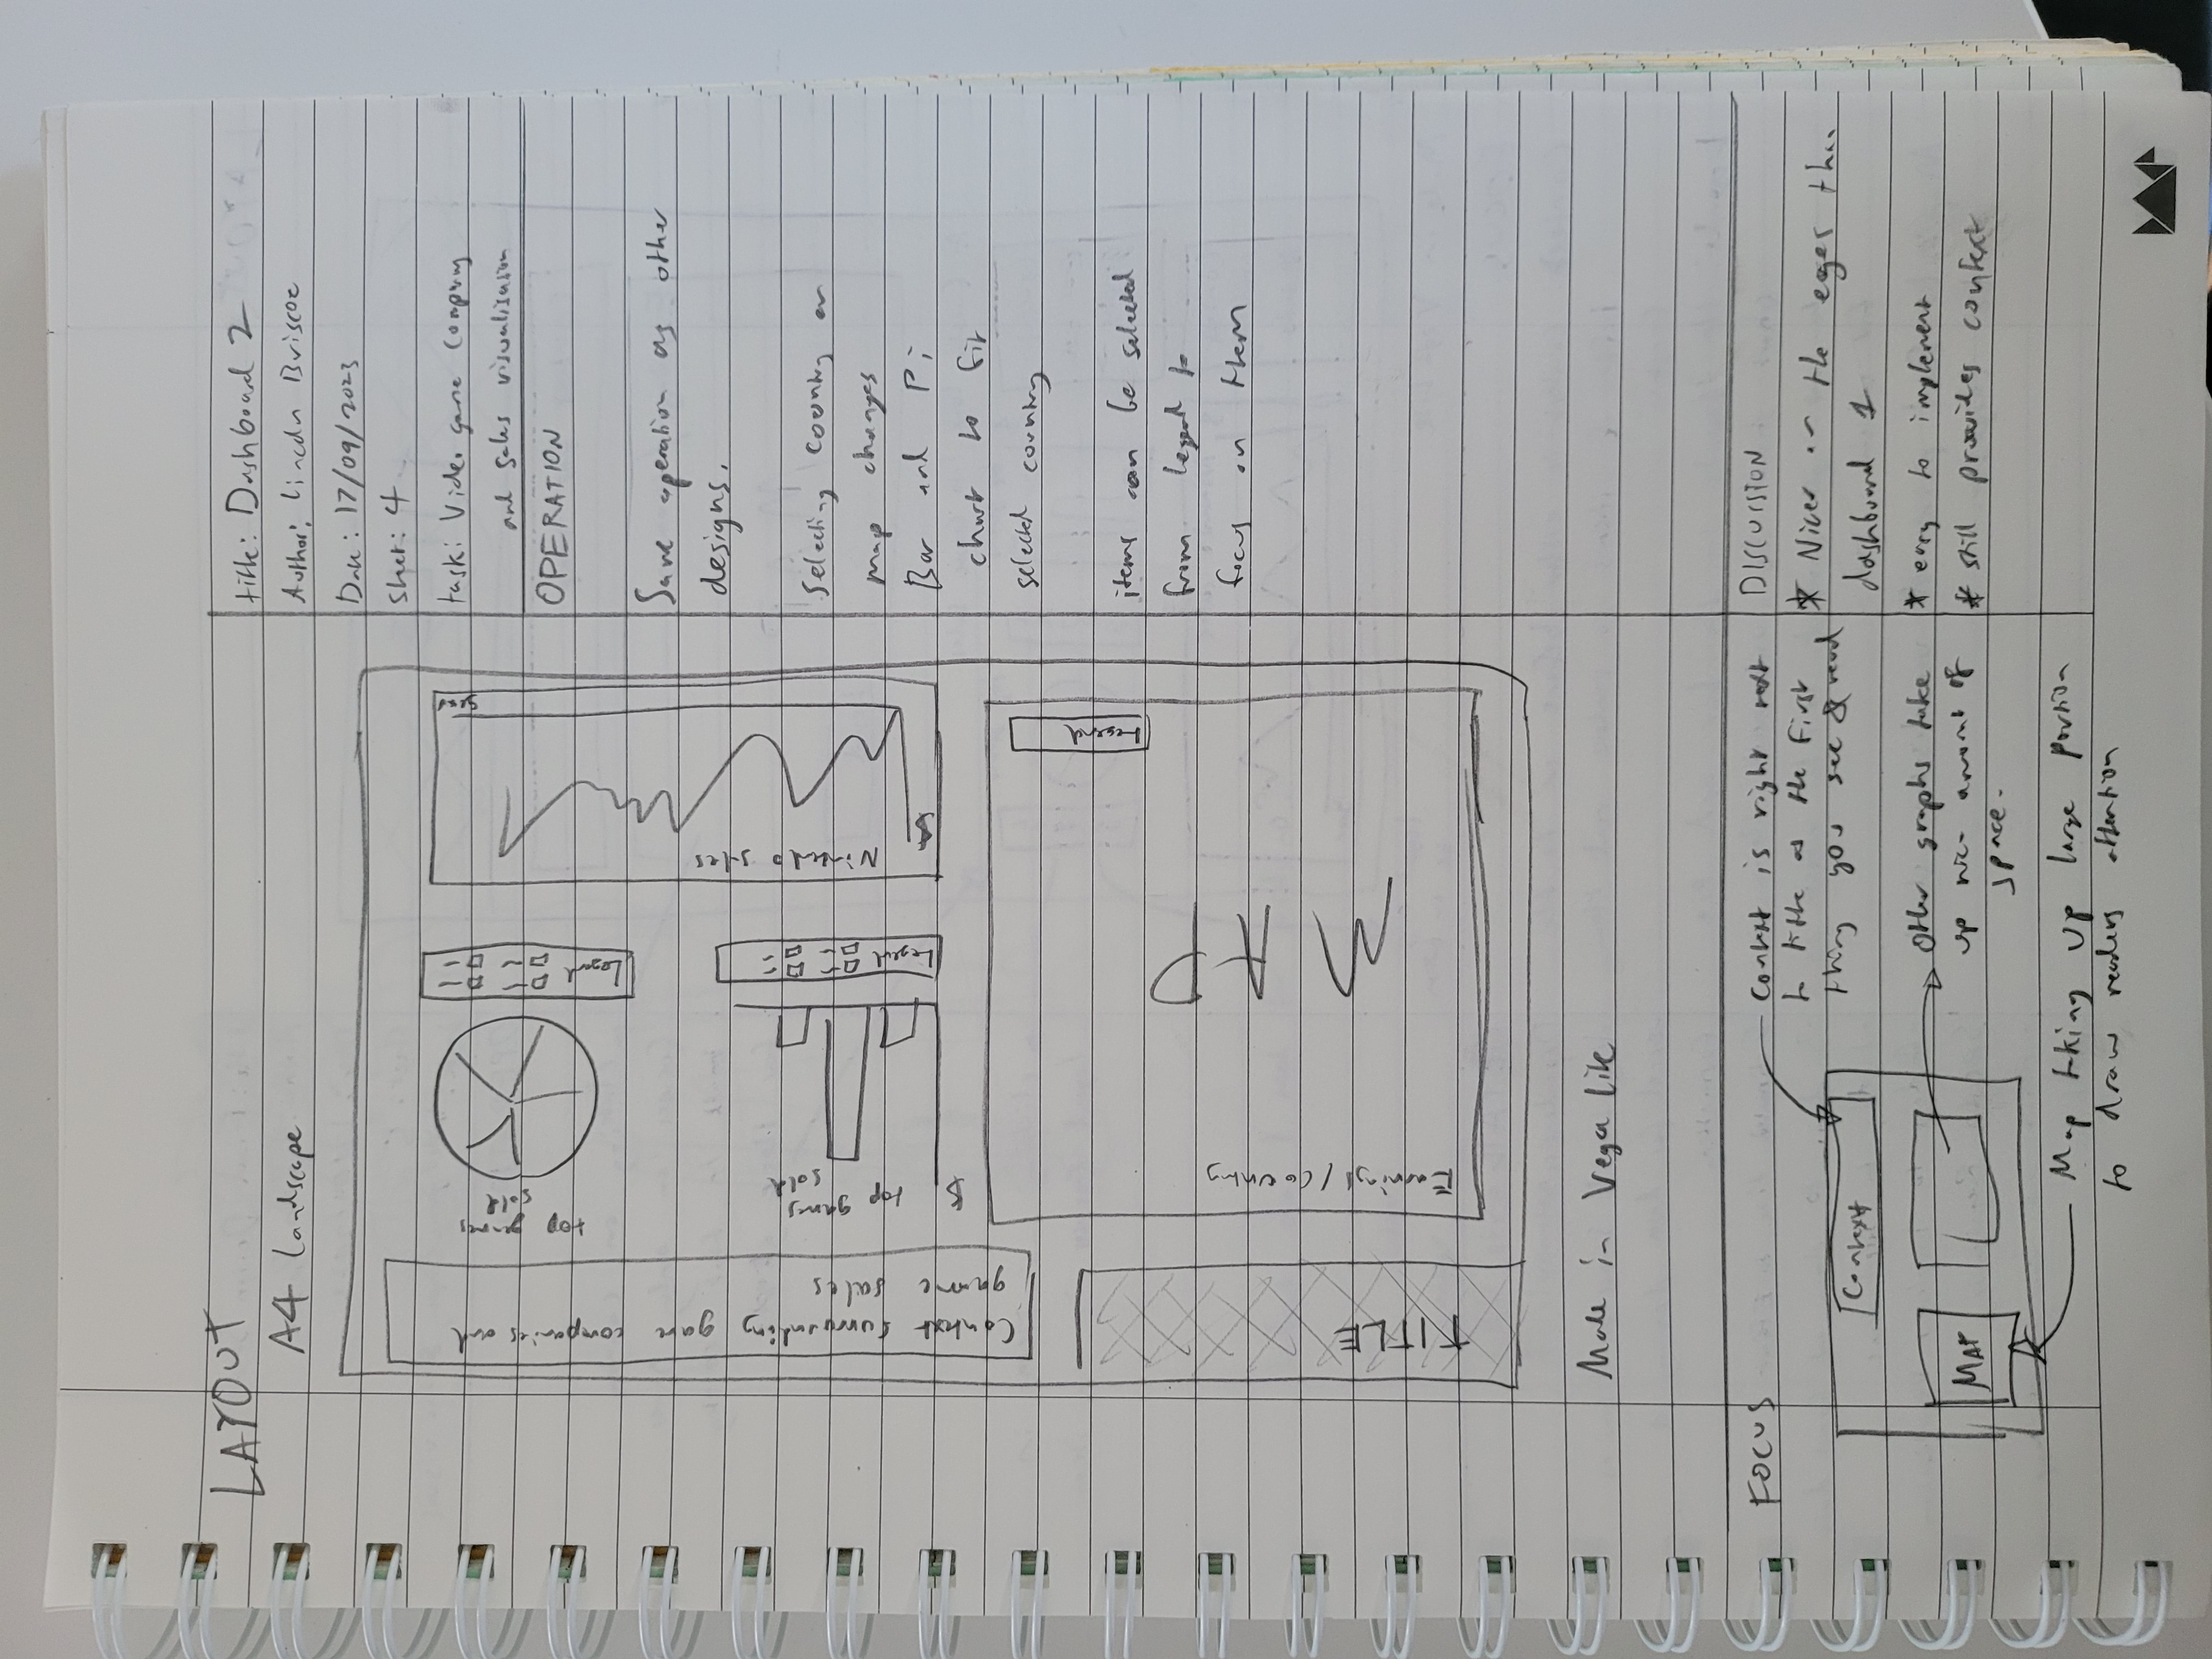 LAYOUT
A4 Landscape
TITLE
Context surrounding game companies and
game sales
Earnings / Country
MAP
Legend
$
top games
sold
Legend
top games
sold
Legend
Nintendo sales
$
Made in Vega lite
title: Dashboard 2
Author: Lincoln Briscoe
Date: 17/09/2023
Sheet: 4
task: Video game company
and sales visualisation
OPERATION
Same operation as other
designs.
Selecting country on
map changes
Bar and Pi
chart to fit
selected country
items can be selected
from legend to
focus on them
FOCUS
Context
MAP
Context is right next
to title as the first
thing you see & read
Other graphs take
up nice amount of
space.
Map taking up large portion
to draw readers attention
DISCUSSION
* Nicer on the eyes than
dashboard 1
* easy to implement
* still provides context